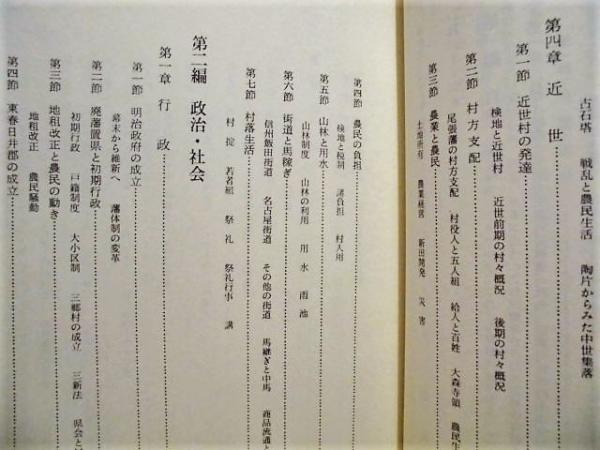 古石塔 戦乱と農民生活 陶片からみた中世集落
第四章 近世
第一節 近世村の発達
検地と近世村 近世前期の村々概況 後期の村々概況
第二節 村方支配
尾張藩の村方支配 村役人と五人組 給人と百姓 大森寺領 農民生
第三節 農業と農民
土地所有 農業経営 新田開発 災害
第四節 農民の負担
検地と税制 諸負担 村入用
第五節 山林と用水
山林制度 山林の利用 用水 雨池
第六節 街道と馬稼ぎ
信州飯田街道 名古屋街道 その他の街道 馬継ぎと中馬 商品流通と
第七節 村落生活
村掟 若者組 祭礼 祭礼行事 講
第二編 政治・社会
第一章 行政
第一節 明治政府の成立
幕末から維新へ 藩体制の変革
第二節 廃藩置県と初期行政
初期行政 戸籍制度 大小区制 三郷村の成立 三新法 県会と
第三節 地租改正と農民の動き
地租改正 農民騒動
第四節 東春日井郡の成立